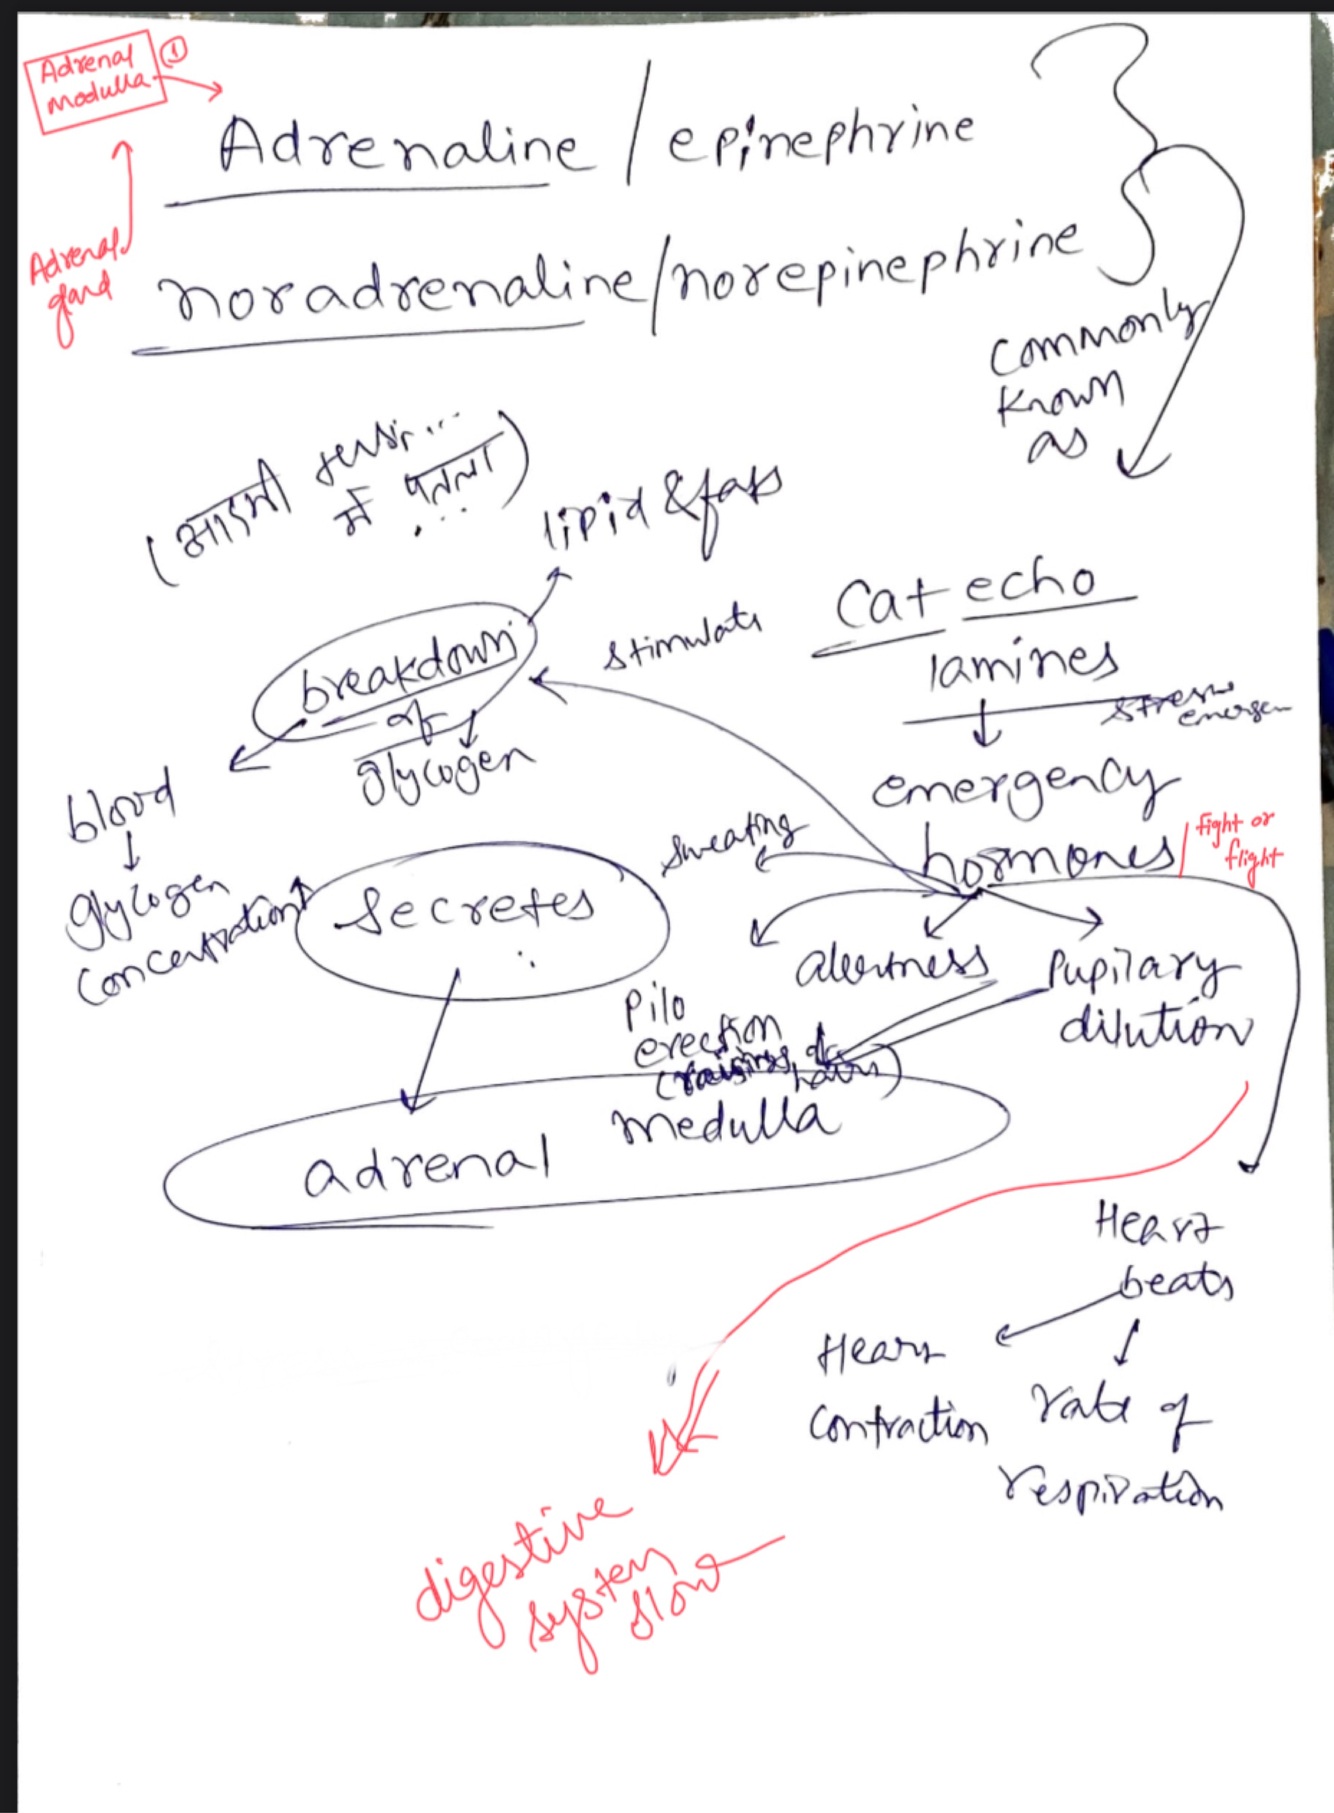 Adrenal
modulla
①
Adrenaline / epinephrine
Adrenal
gland
noradrenaline/norepinephrine
commonly
known
as
में पतला
lipid & fats
Catecho
lamines
stimulate
breakdown
of
glycogen
stress
emergen
emergency
hormones
fight or
flight
blood
glycogen
concentration↑
sweating
Secretes
alertness
Pupilary
dilution
Pilo
erection
(raising of
hairs)
adrenal medulla
Heart
beats
Heart
contraction
rate of
respiration
digestive
system
slow